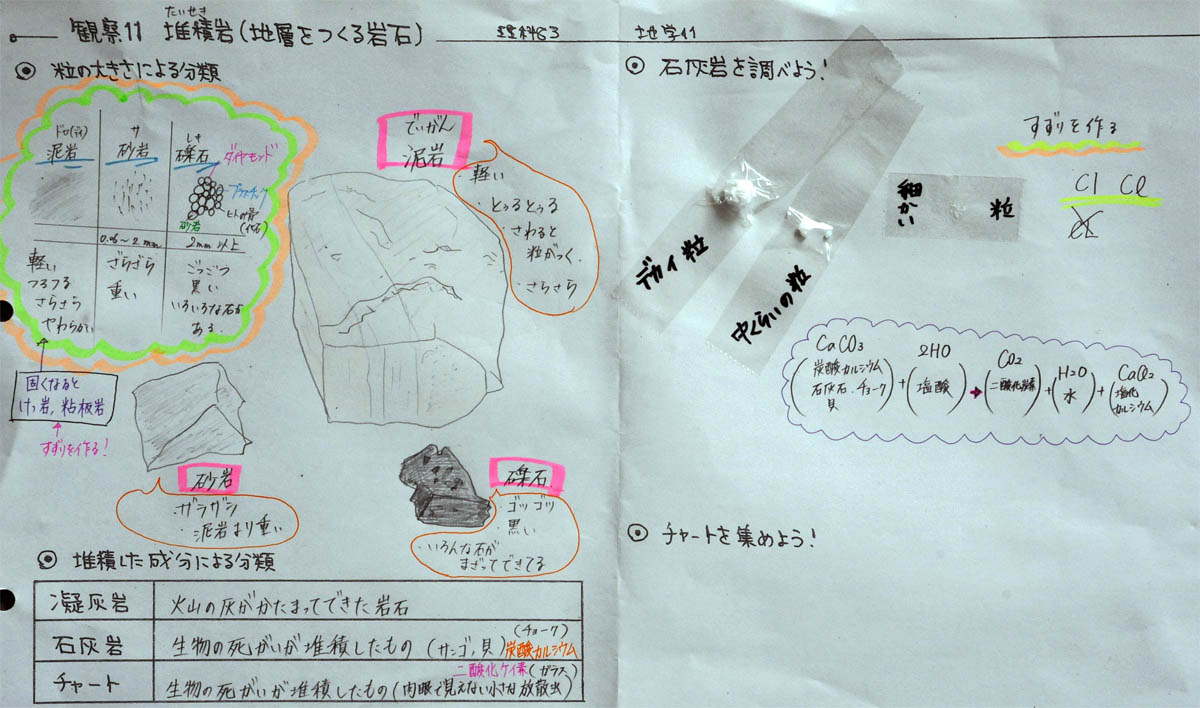 たいせき
観察11 堆積岩(地層をつくる岩石)
理科83
地学11
粒の大きさによる分類
ドロ(デイ)
泥岩
サ
砂岩
れき
礫石
ダイヤモンド
プラスチック
ヒトの骨
(化石)
砂岩
0.06〜2mm
2mm以上
軽い
つるつる
さらさら
やわらかい
ざらざら
重い
ごつごつ
黒い
いろいろな石が
ある
固くなると
けつ岩,粘板岩
すずりを作る!
でいがん
泥岩
軽い
・とぅるとぅる
・さわると
粒がつく.
・さらさら
砂岩
ザラザラ
・泥岩より重い
礫石
・ゴツゴツ
・黒い
・いろんな石が
まざってできてる
堆積した成分による分類
凝灰岩 火山の灰がかたまってできた岩石
石灰岩 生物の死がいが堆積したもの (サンゴ,貝) (チョーク) 炭酸カルシウム
チャート 生物の死がいが堆積したもの(肉眼で見えない小さな放散虫) 二酸化ケイ素(ガラス)
石灰岩を調べよう!
すずりを作る
デカイ粒
中くらいの粒
細かい 粒
Cl Cl
CaCO3 2HO CO2 H2O CaCl2
(炭酸カルシウム 石灰石・チョーク 貝)+(塩酸)→(二酸化炭素)+(水)+(塩化カルシウム)
チャートを集めよう!